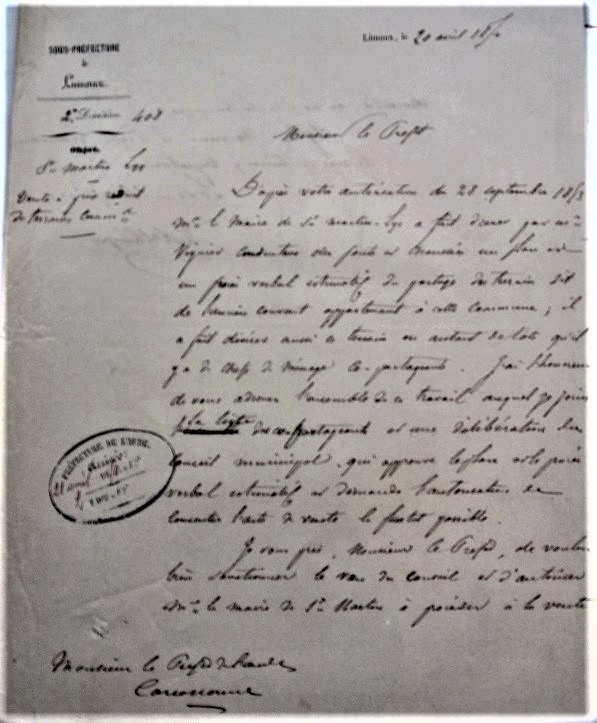 SOUS-PRÉFECTURE
de
Limoux.
2e Division 408
OBJET
St Martin Lys
Vente à prix réduit
de terrains commx
Limoux, le 20 avril 185
Monsieur le Préfet
D'après votre autorisation du 28 septembre 185
Mr le Maire de St Martin-Lys a fait dresser par Mr
Vignier conducteur des ponts et chaussées un plan et
un procès verbal estimatif du partage des terrains dit
de l'ancien couvent appartenant à cette commune ; il
a fait diviser aussi ce terrain en autant de lots qu'il
y a de chefs de ménage co-partageants. J'ai l'honneur
de vous adresser l'ensemble de ce travail auquel je joins
la liste des copartageants et une délibération du
Conseil municipal, qui approuve le plan et le procès
verbal estimatif et demande l'autorisation de
consentir l'acte de vente le plustôt possible.
Je vous prie, Monsieur le Préfet, de vouloir
bien sanctionner le vœu du conseil et d'autoriser
Mr le maire de St Martin à procéder à la vente
PRÉFECTURE DE L'AUDE
21 avril
Monsieur le Préfet de l'aude
Carcassonne